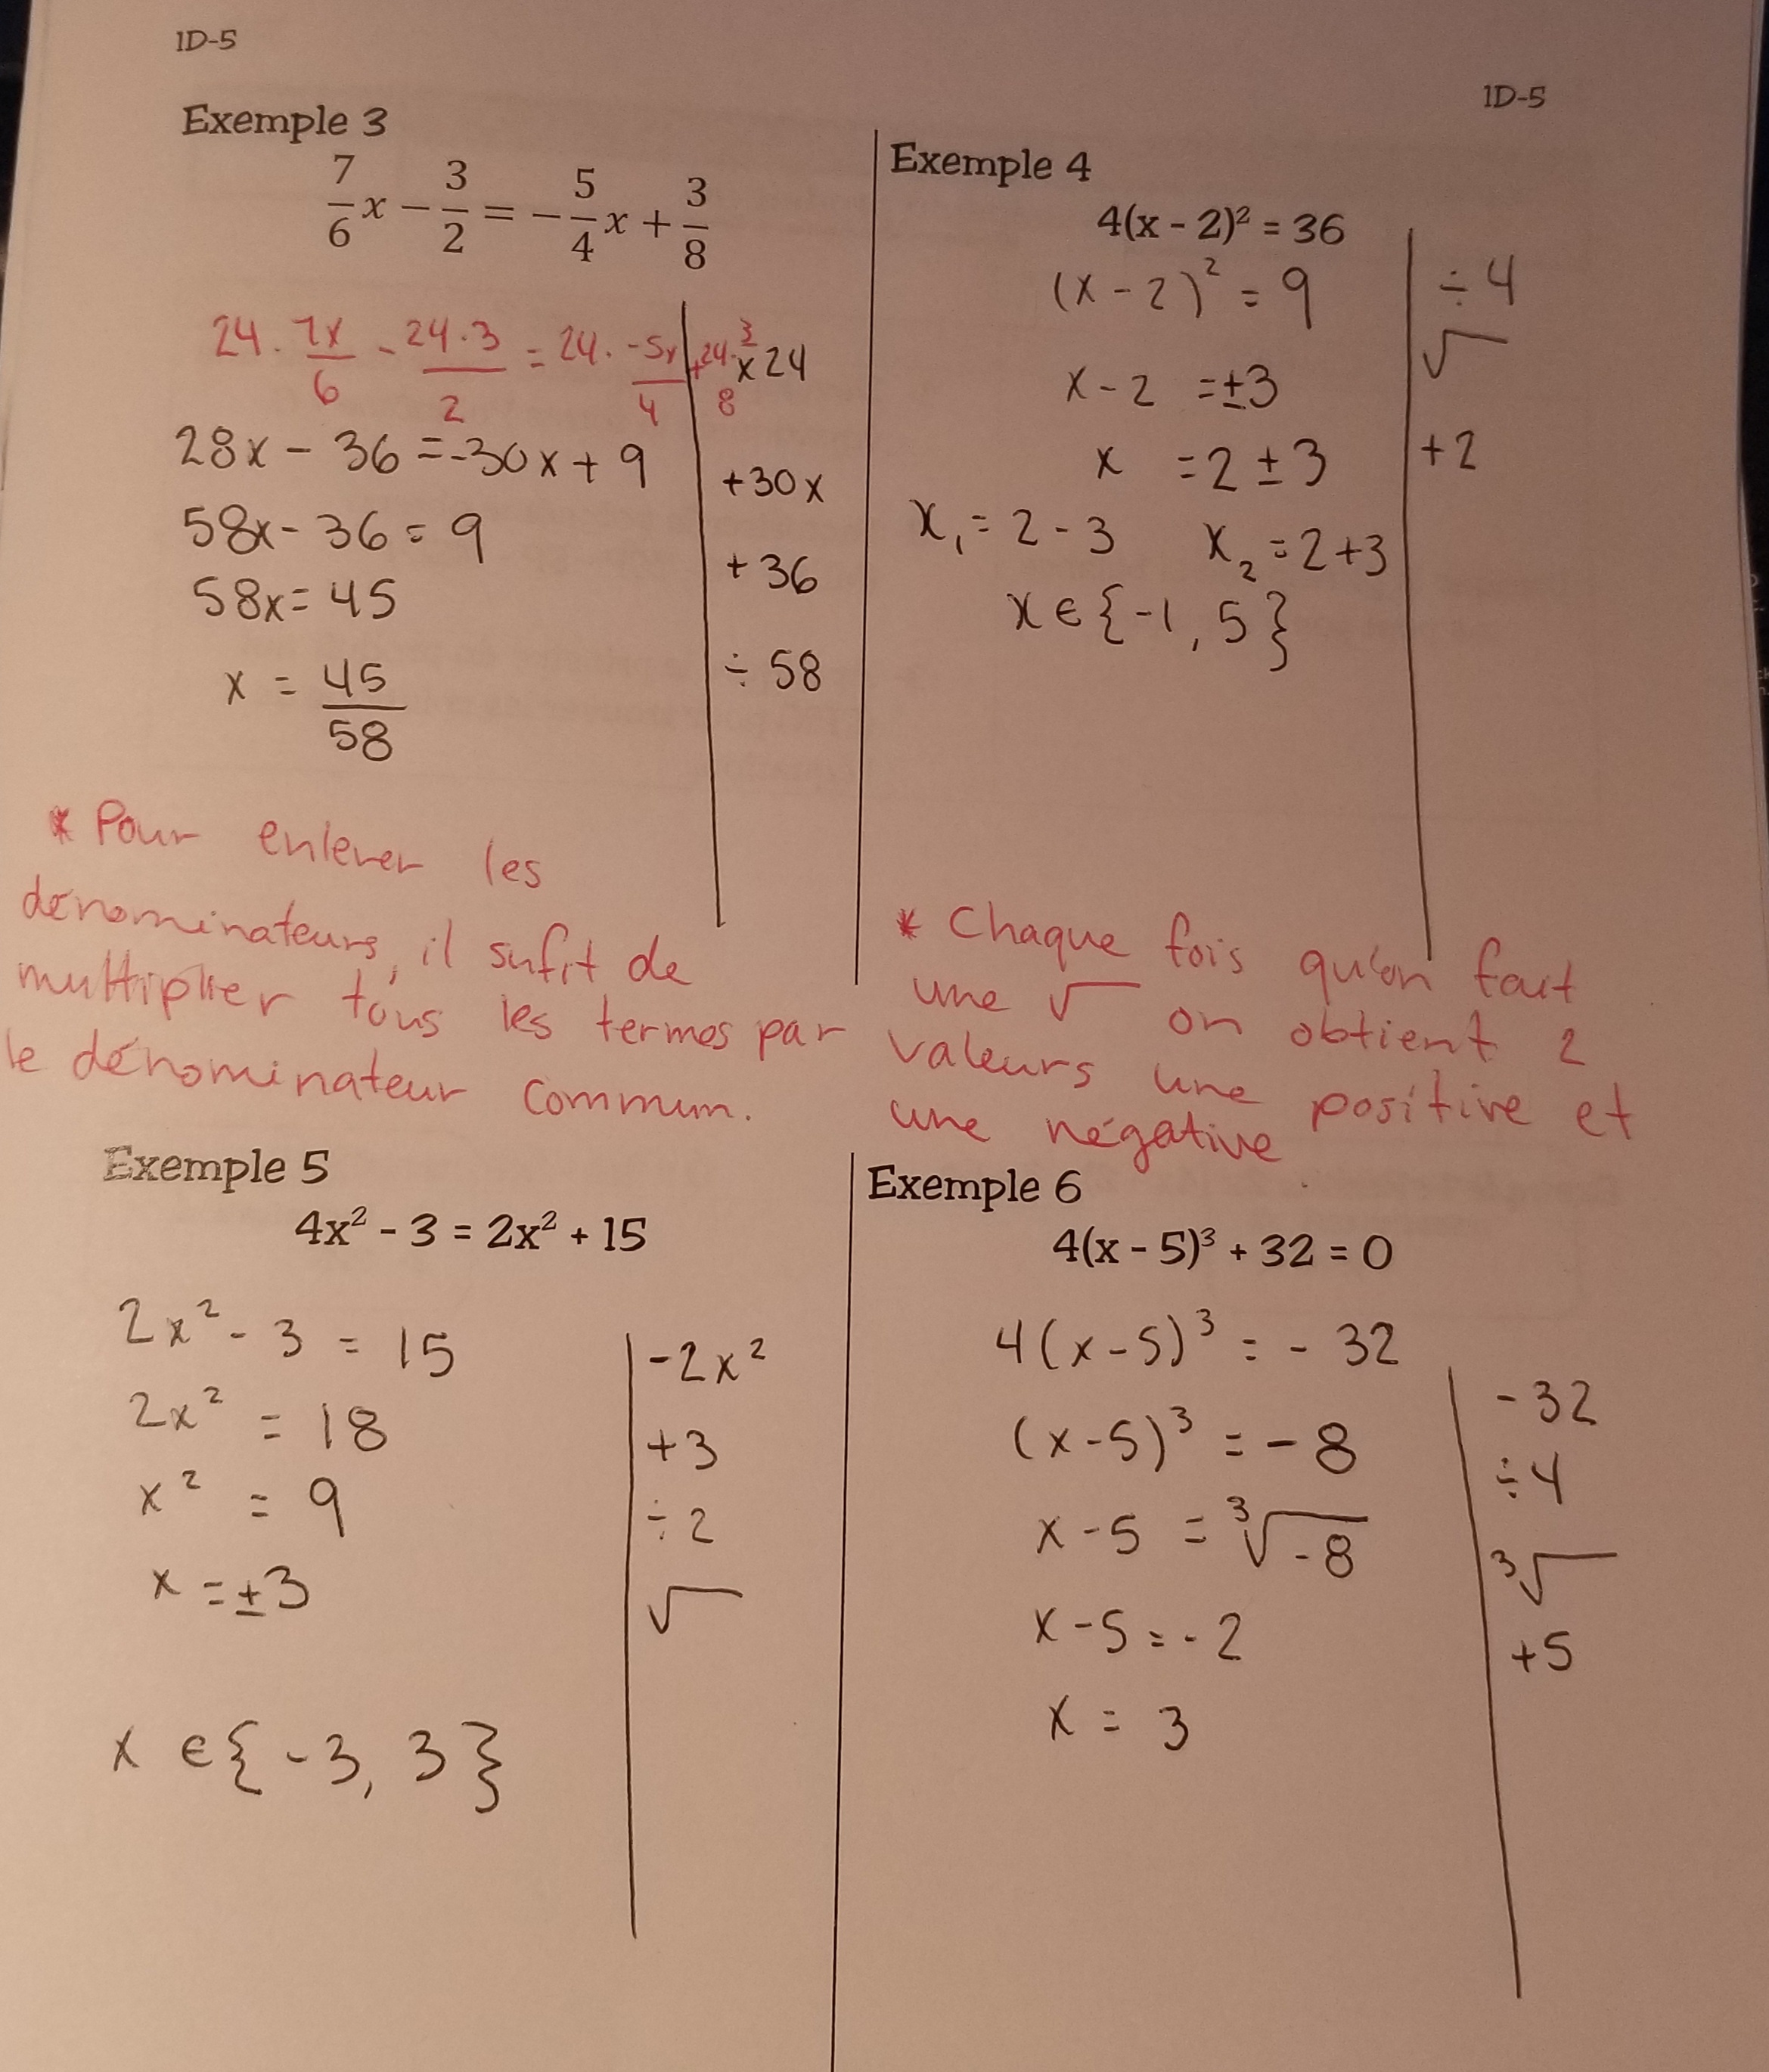 1D-5
1D-5
Exemple 3
7/6 x - 3/2 = - 5/4 x + 3/8
24 · 7x/6 - 24·3/2 = 24 · -5x/4 + 24·3/8
x24
28x - 36 = -30x + 9
+30x
58x - 36 = 9
+36
58x = 45
÷ 58
x = 45/58
* Pour enlever les
dénominateurs, il sufit de
multiplier tous les termes par
le dénominateur commun.
Exemple 4
4(x - 2)² = 36
(x - 2)² = 9
÷ 4
√
x - 2 = ±3
+2
x = 2 ± 3
x₁ = 2 - 3 x₂ = 2 + 3
x ∈ {-1, 5}
* Chaque fois qu'on fait
une √ on obtient 2
valeurs une positive et
une négative
Exemple 5
4x² - 3 = 2x² + 15
2x² - 3 = 15
-2x²
2x² = 18
+3
x² = 9
÷2
x = ±3
√
x ∈ {-3, 3}
Exemple 6
4(x - 5)³ + 32 = 0
4(x - 5)³ = - 32
-32
(x - 5)³ = - 8
÷4
x - 5 = ³√-8
³√
x - 5 = -2
+5
x = 3